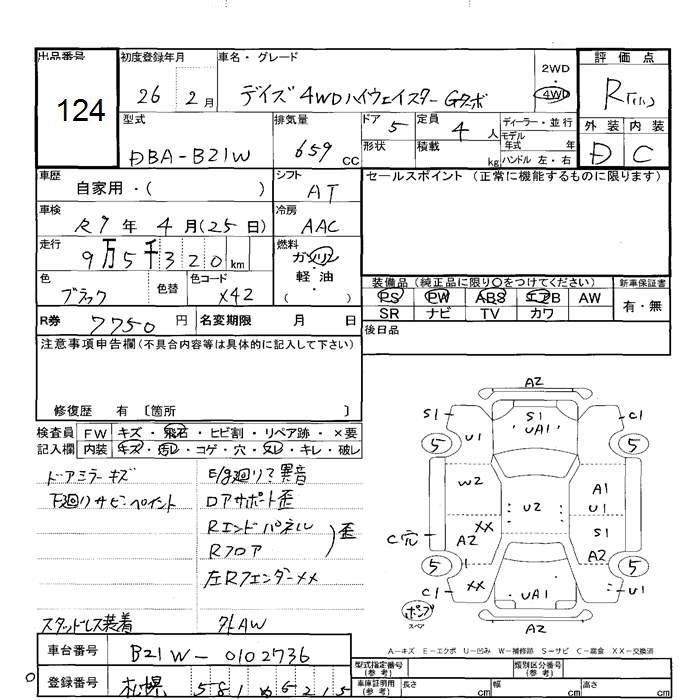 出品番号
124
初度登録年月
26 2月
車名・グレード
デイズ 4WD ハイウェイスター Gターボ
2WD
4WD
評価点
R
外装 内装
D C
型式
DBA-B21W
排気量
659 CC
ドア 5
定員 4 人
形状
積載 kg
ディーラー・並行
モデル年式 年
ハンドル 左・右
車歴
自家用・( )
シフト
AT
車検
R7年 4月(25日)
冷房
AAC
走行
9万5千320km
燃料
ガソリン
軽油
( )
色
ブラック
色替
色コード
X42
R券 7750円
名変期限 月 日
セールスポイント (正常に機能するものに限ります)
装備品 (純正品に限り○をつけてください)
新車保証書
PS PW ABS エアB AW
有・無
SR ナビ TV カワ
後日品
注意事項申告欄(不具合内容等は具体的に記入して下さい)
修復歴 有 〔箇所 〕
検査員記入欄
FW キズ・飛石・ヒビ割・リペア跡・×要
内装 キズ・汚レ・コゲ・穴・スレ・キレ・破レ
ドアミラーキズ
下廻りサビ・ペイント
スタッドレス装着
E/g廻り?異音
Dアサポート歪
Rエンドパネル
Rフロア
歪
左RフェンダーXX
外AW
A2
S1
S1
C1
UA1
5
5
U1
W2
A1
U1
U2
XX
S1
C穴
A2
A2
5
5
C1
XX
UA1
U1
ポンプ
スペア
A2
A-キズ E-エクボ U-凹み W-補修跡 S-サビ C-腐食 XX-交換済
車台番号
B21W-0102736
登録番号
札幌 581
型式指定番号(参考)
類別区分番号(参考)
車庫証明用(参考)
長さ cm
幅 cm
高さ cm